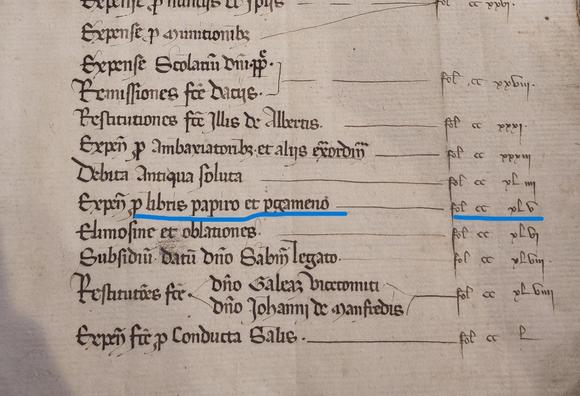 Expense ꝑ nunciis et Ipiis fol cc xxvi.
Expense ꝑ Munitionibꝫ
Expense Scolariū dm̄. ꝑꝑ̄.
Remissiones fc̄e Daciis. fol. cc xxviii.
Restitutiones fc̄e Illis de Albertis. fol cc xxxi
Expen̄ ꝑ Ambaxiatoribꝫ et aliis ex̄ordiīs fol cc xxxiii
Debita Antiqua soluta fol cc xL iii
Expen̄ ꝑ libris papiro et ꝑgameno fol cc xL v
Elimosine et oblationes. fol cc xL vi
Subsidiū datū dn̄o Sabin̄ legato. fol cc xL viii.
Restitutōes fc̄e dn̄o Galeaz Vicecomiti
dn̄o Johanni de Manfredis fol cc xL viiii
Expen̄ fc̄e ꝑ Conducta Salis. fol cc L